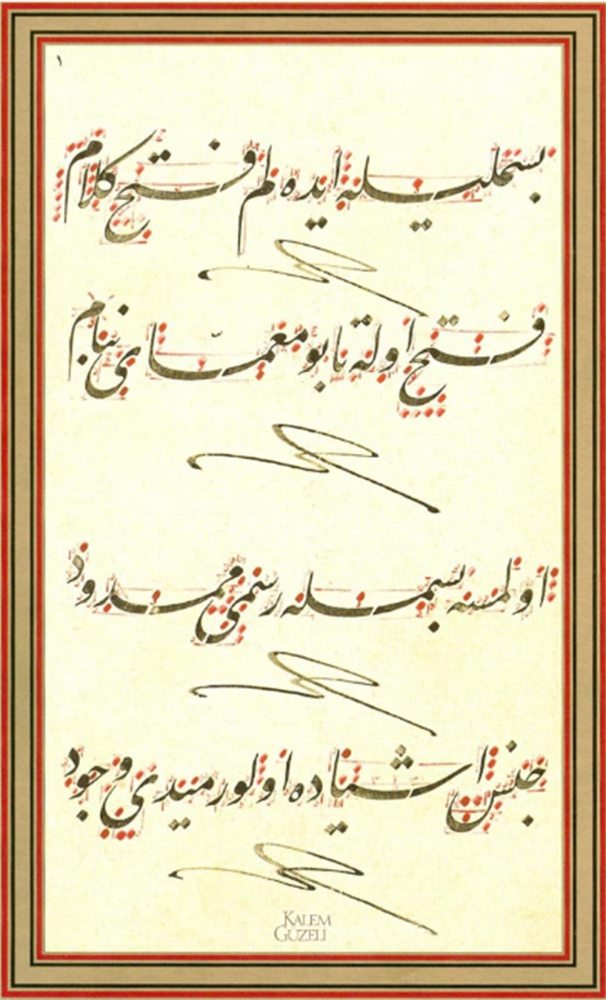 ١
بسمليله ايده لم فتح كلام
فتح اولة تا بو معمّاى بنام
اولمسه بسمله رسمى ممدود
جنس اشياده اولورميدى وجود
KALEM
GÜZELİ